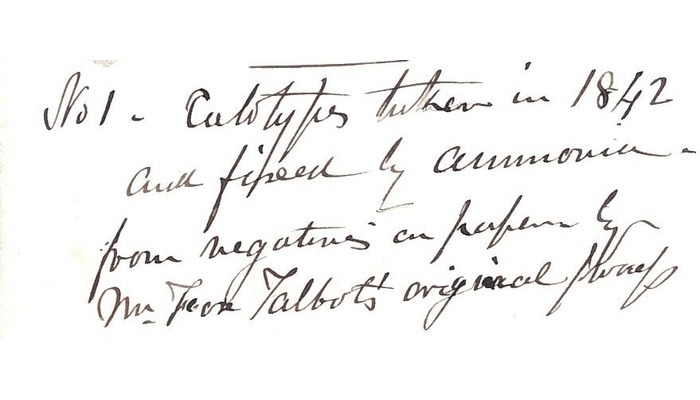 No 1 - Calotypes taken in 1842
and fixed by ammonia -
from negatives on paper by
Mr Fox Talbot's original process